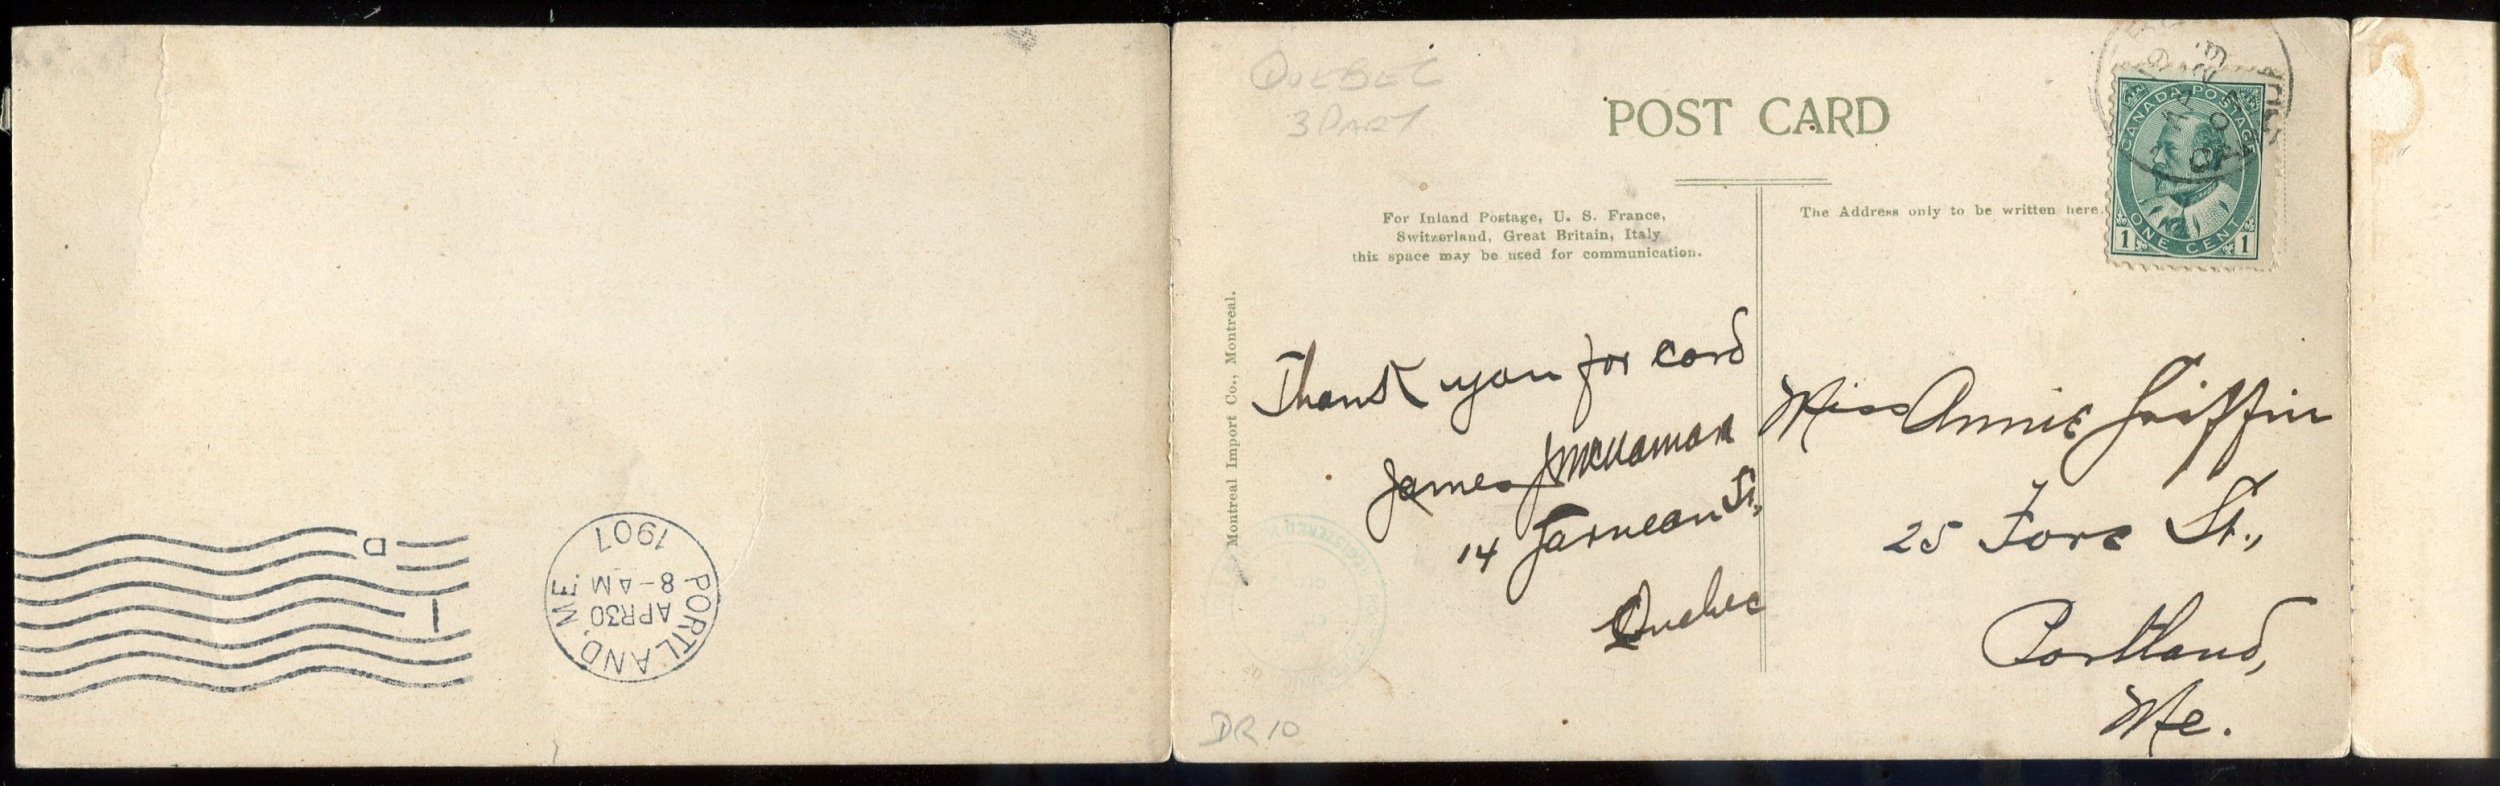 QUEBEC
3 PART
POST CARD
For Inland Postage, U. S. France,
Switzerland, Great Britain, Italy
this space may be used for communication.
The Address only to be written here.
CANADA POSTAGE
ONE CENT
1 1
Montreal Import Co., Montreal.
Thank you for card
James J McNamara
14 Garneau St,
Quebec
Miss Annie Griffin
25 Fore St.,
Portland,
Me.
DR 10
PORTLAND, ME.
APR 30
8-AM
1907
D
1